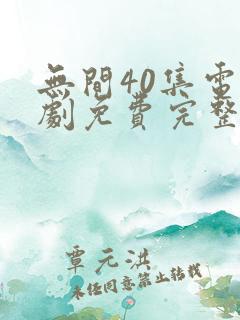 無間40集電
劇免費完整
覃元洪
未任同意禁止转载